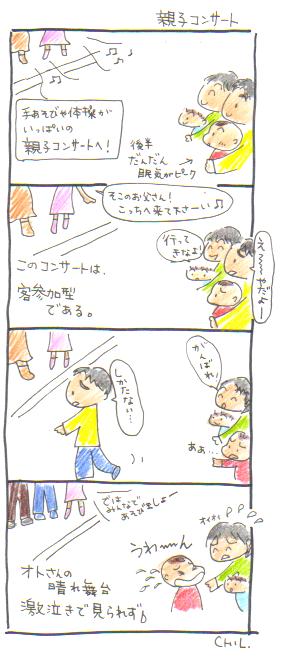 親子コンサート
手あそびや体操が
いっぱいの
親子コンサートへ!
後半
だんだん
眠気がピーク
そこのお父さん!
こっちへ来て下さーい♪
行って
きなよ!
え〜〜やだよー
このコンサートは、
客参加型
である。
がんばれ!
しかたない…
ああ…
では
みんなで
あそびましょー
うわーーん
オイオイ
オトさんの
晴れ舞台
激泣きで見られず
CHIL.